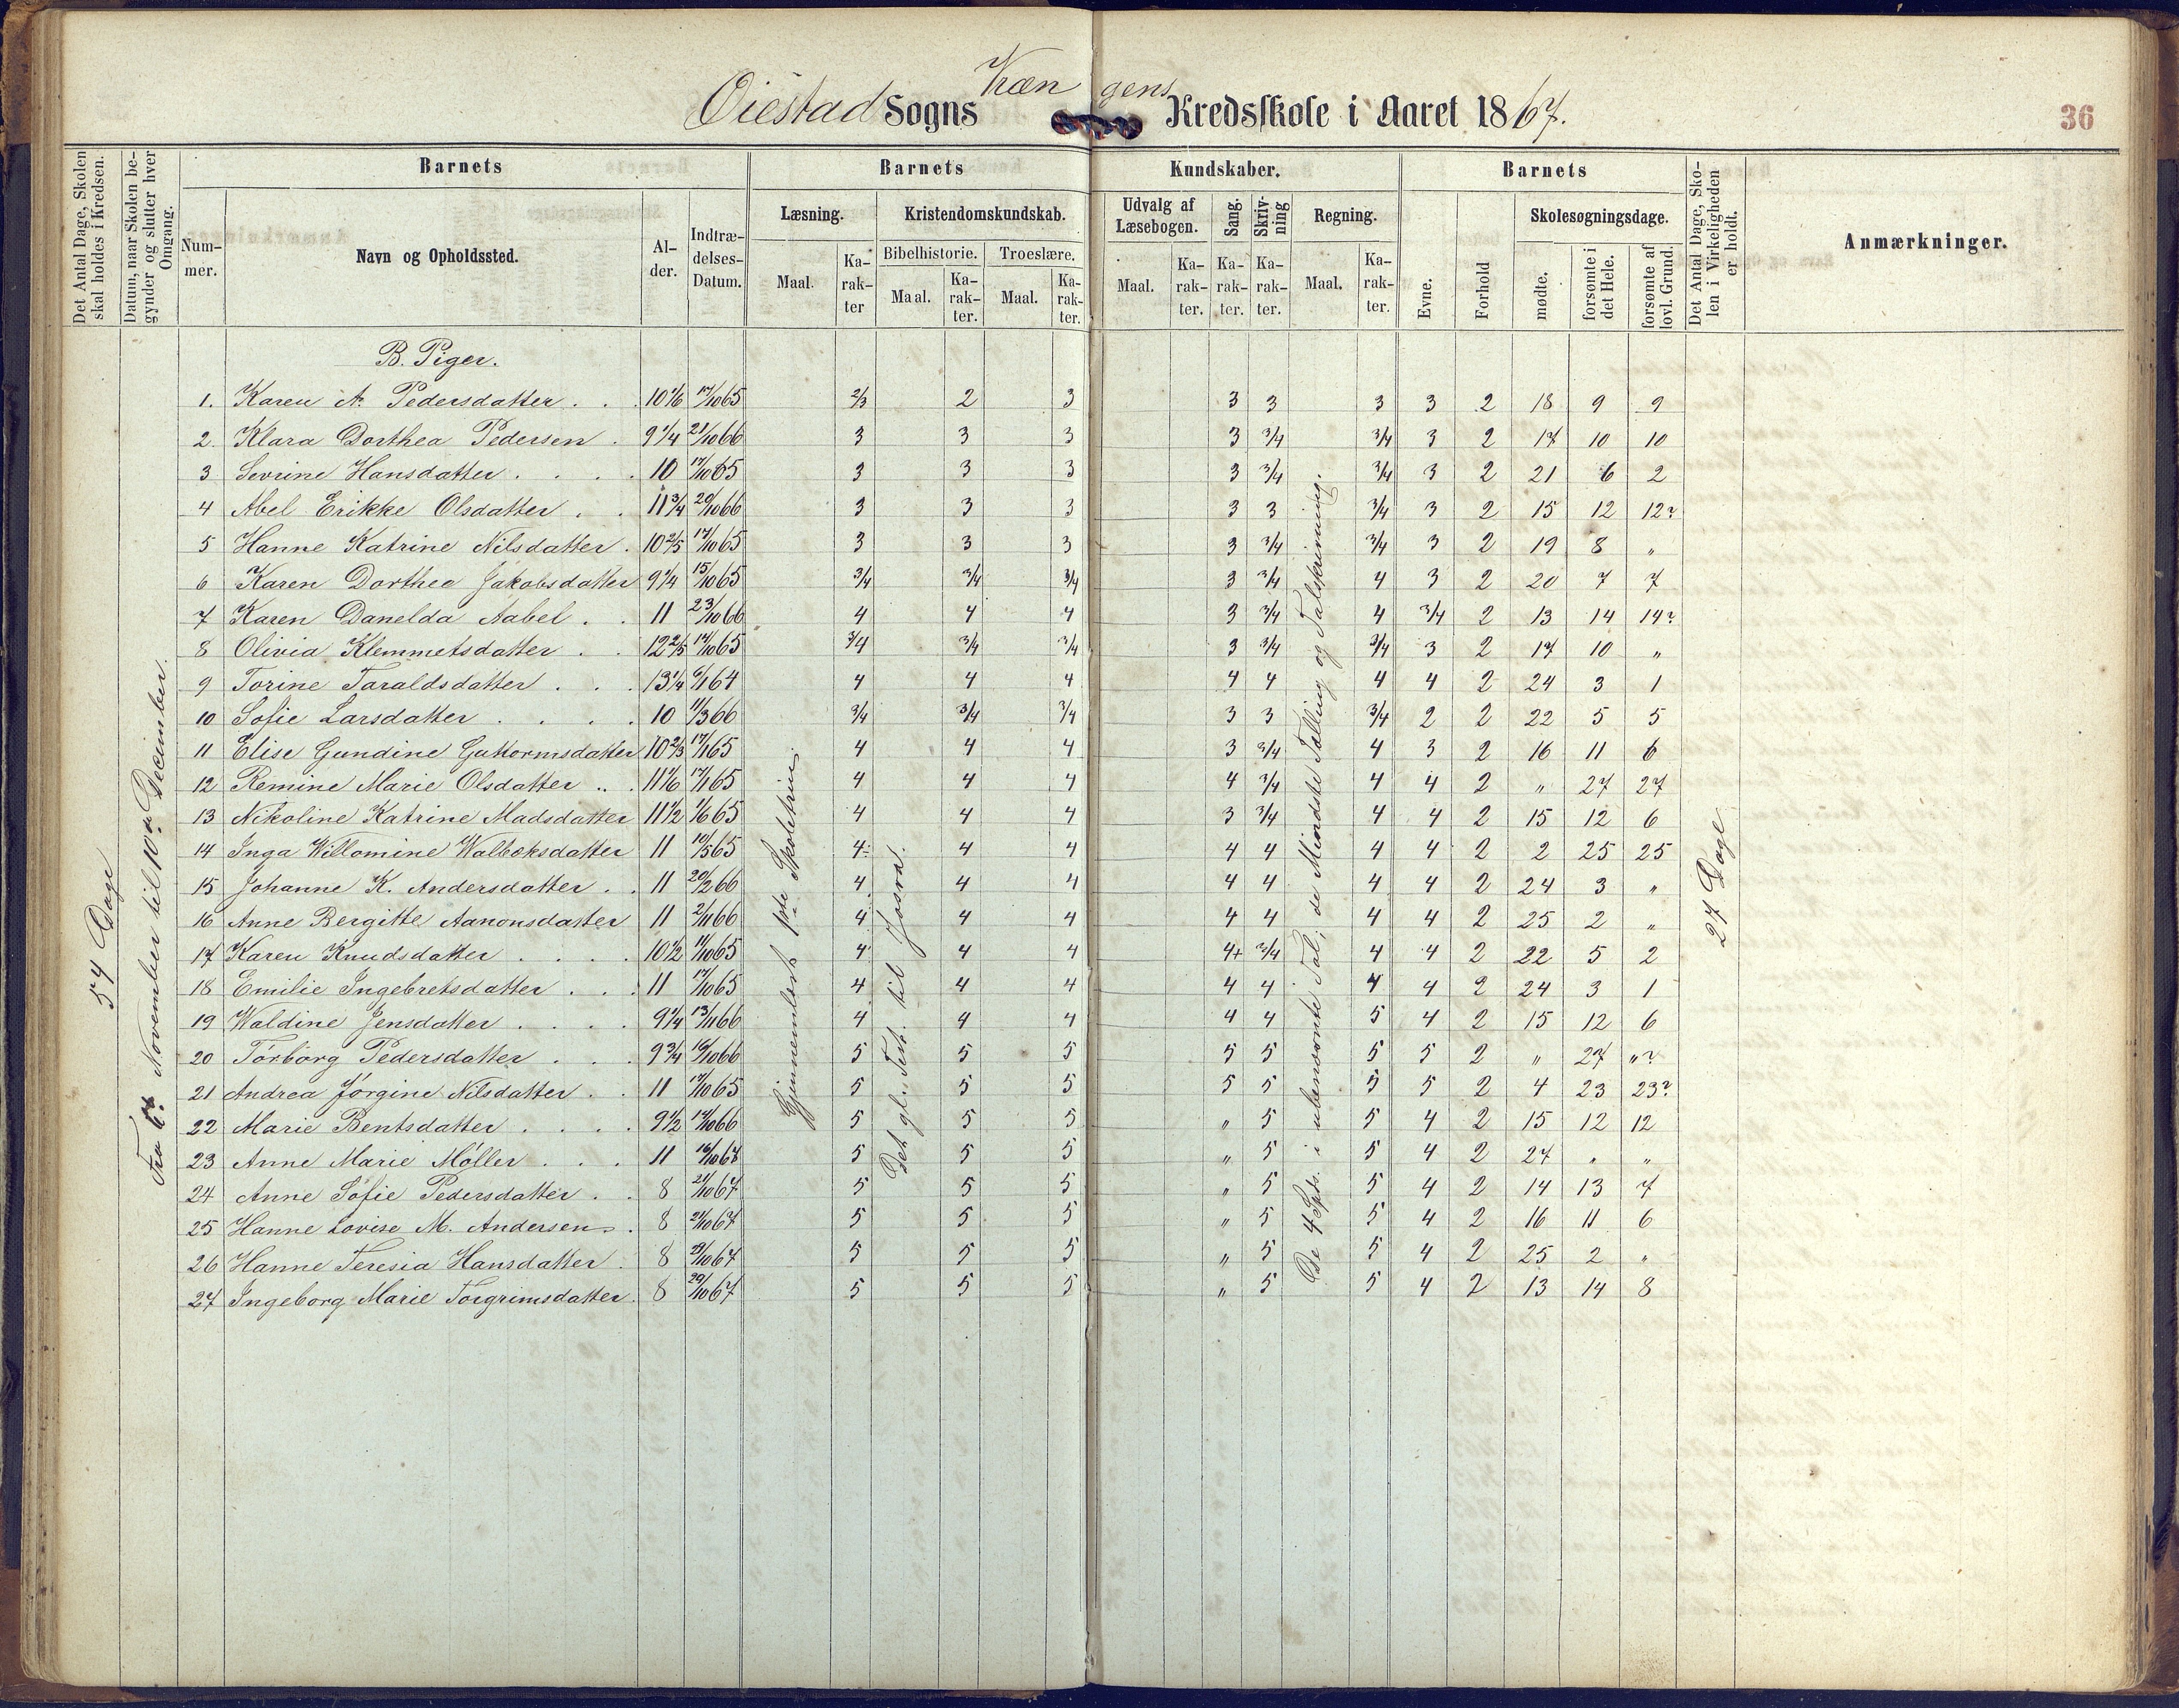 Øiestad Sogns Kræn gens Kredsskole i Aaret 1867.
36
Det Antal Dage, Skolen skal holdes i Kredsen.
Datum, naar Skolen begynder og slutter hver Omgang.
Barnets
Barnets
Kundskaber.
Barnets
Det Antal Dage, Skolen i Virkeligheden er holdt.
Anmærkninger.
Nummer.
Navn og Opholdssted.
Alder.
Indtrædelses-Datum.
Læsning.
Kristendomskundskab.
Udvalg af Læsebogen.
Sang.
Skrivning
Regning.
Evne.
Forhold
Skolesøgningsdage.
Bibelhistorie.
Troeslære.
Maal.
Karakter
Maal.
Karakter.
Maal.
Karakter.
Maal.
Karakter.
Karakter.
Karakter.
Maal.
Karakter.
mødte.
forsømte i det Hele.
forsømte af lovl. Grund.
54 Dage
November til 10de December.
Gjennemlæst 1ste Skoletrin.
Det gl. Test. til Josva.
De 4 Spts. i ubenævnte Tal, de Mindste Tælling og Talskrivning.
27 Dage
B. Piger.
1. Karen A. Pedersdatter . . 10 1/6 17/10 65 2/3 2 3 3 3 3 3 2 18 9 9
2. Klara Dorthea Pedersen . 9 1/4 21/10 66 3 3 3 3 3/4 3/4 3 2 17 10 10
3 Sevrine Hansdatter . . . . 10 17/10 65 3 3 3 3 3/4 3/4 3 2 21 6 2
4 Abel Erikke Olsdatter . . 11 3/4 20/10 66 3 3 3 3 3 3/4 3 2 15 12 12?
5 Hanne Katrine Nilsdatter . 10 2/5 17/10 65 3 3 3 3 3/4 3/4 3 2 19 8 "
6 Karen Dorthea Jakobsdatter 9 1/4 15/10 65 3/4 3/4 3/4 3 3/4 4 3 2 20 7 7
7 Karen Danelda Aabel . . 11 23/10 66 4 4 4 3 3/4 4 3/4 2 13 14 14?
8 Olivia Klemmetsdatter . . 12 2/5 17/10 65 3/4 3/4 3/4 3 3/4 3/4 3 2 17 10 "
9 Torine Taraldsdatter . . . 13 1/4 6/1 64 4 4 4 4 4 4 4 2 24 3 1
10 Sofie Larsdatter . . . . 10 11/3 66 3/4 3/4 3/4 3 3 3/4 2 2 22 5 5
11 Elise Gundine Guttormsdatter 10 2/3 17/1 65 4 4 4 3 3/4 4 3 2 16 11 6
12 Remine Marie Olsdatter .. . 11 1/6 17/1 65 4 4 4 4 3/4 4 4 2 " 27 27
13 Nikoline Katrine Madsdatter 11 1/2 1/6 65 4 4 4 3 3/4 4 4 2 15 12 6
14 Inga Willomine Walboksdatter 11 10/5 65 4 4 4 4 4 4 4 2 2 25 25
15 Johanne K. Andersdatter . . 11 20/2 66 4 4 4 4 4 4 4 2 24 3 "
16 Anne Bergitte Aanonsdatter 11 2/11 66 4 4 4 4 4 4 4 2 25 2 "
17 Karen Knudsdatter . . . . 10 1/2 11/10 65 4 4 4 4+ 3/4 4 4 2 22 5 2
18 Emilie Ingebretsdatter . . . 11 17/10 65 4 4 4 4 4 4 4 2 24 3 1
19 Waldine Jensdatter . . . . 9 1/4 13/11 66 4 4 4 4 4 5 4 2 15 12 6
20 Torborg Pedersdatter . . . 9 3/4 16/10 66 5 5 5 5 5 5 5 2 " 27 "?
21 Andrea Jørgine Nilsdatter . . 11 17/10 65 5 5 5 5 5 5 5 2 4 23 23?
22 Marie Bentsdatter . . . . 9 1/2 17/10 66 5 5 5 " 5 5 4 2 15 12 12
23 Anne Marie Møller . . . 11 16/10 67 5 5 5 " 5 5 4 2 27 " "
24 Anne Sofie Pedersdatter . . 8 21/10 67 5 5 5 " 5 5 4 2 14 13 7
25 Hanne Lovise M. Andersen . 8 21/10 67 5 5 5 " 5 5 4 2 16 11 6
26 Hanne Teresia Hansdatter . 8 29/10 67 5 5 5 " 5 5 4 2 25 2 "
27 Ingeborg Marie Torgrimsdatter . 8 29/10 67 5 5 5 " 5 5 4 2 13 14 8